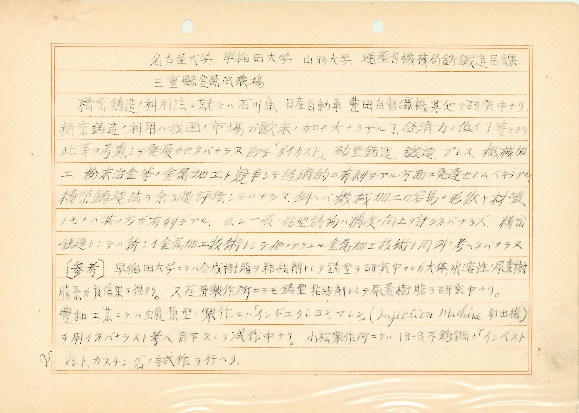 名古屋大学 早稲田大学 山形大学 通産省機械局鋳鍛造品課
三重県窯業試験場
精密鋳造ノ利用法ニ就テハ石川島、日産自動車 豊田自動織機其他デ研究中ナリ
精密鋳造ノ利用ハ我国ノ市場ガ欧米ノ如ク大ナラザル了、経済力ノ低イ了等ヨリ
此等ヲ考慮シテ発展サセネバナラヌ 即チ「ダイカスト」、砂型鋳造、鍛造、プレス、機械加
工、粉末冶金等ノ金属加工ト競争シテ経済的ニ有利デアル方面ニ発達セシムベキデアル
精密鋳造法ヲ余リ過評価シテハナラヌ、例ヘバ機械加工ガ容易ナ形状ト材質
ノモノハ其ノ方ガ有利デアル、又一般ノ砂型鋳物ハ精度ノ向上ヲ計ラネバナラズ、精密
鋳造トシテハ新シイ金属加工技術トシテ他ノアラユル金属加工技術ト同列ニ考ヘネバナラヌ
[参考] 早稲田大学ニテハ合成樹脂ヲ粘結剤トシタ鋳型ヲ研究中ナルガ大体水溶性ノ尿素樹
脂系ガ良結果ヲ得タリ。又 製作所ニテモ鋳型粘結剤トシテ尿素樹脂ヲ研究中ナリ。
工業ニテハ蝋原型ノ製作ニハ「インヂェクションマシン」(Injection Machine 射出機)
ヲ用イネバナラヌト考ヘ、目下之レヲ試作中ナリ。小松製作所ニテハ 18-8不銹鋼ノ「インベスト
メント、カスチング」ノ試作ヲ行ヘリ。